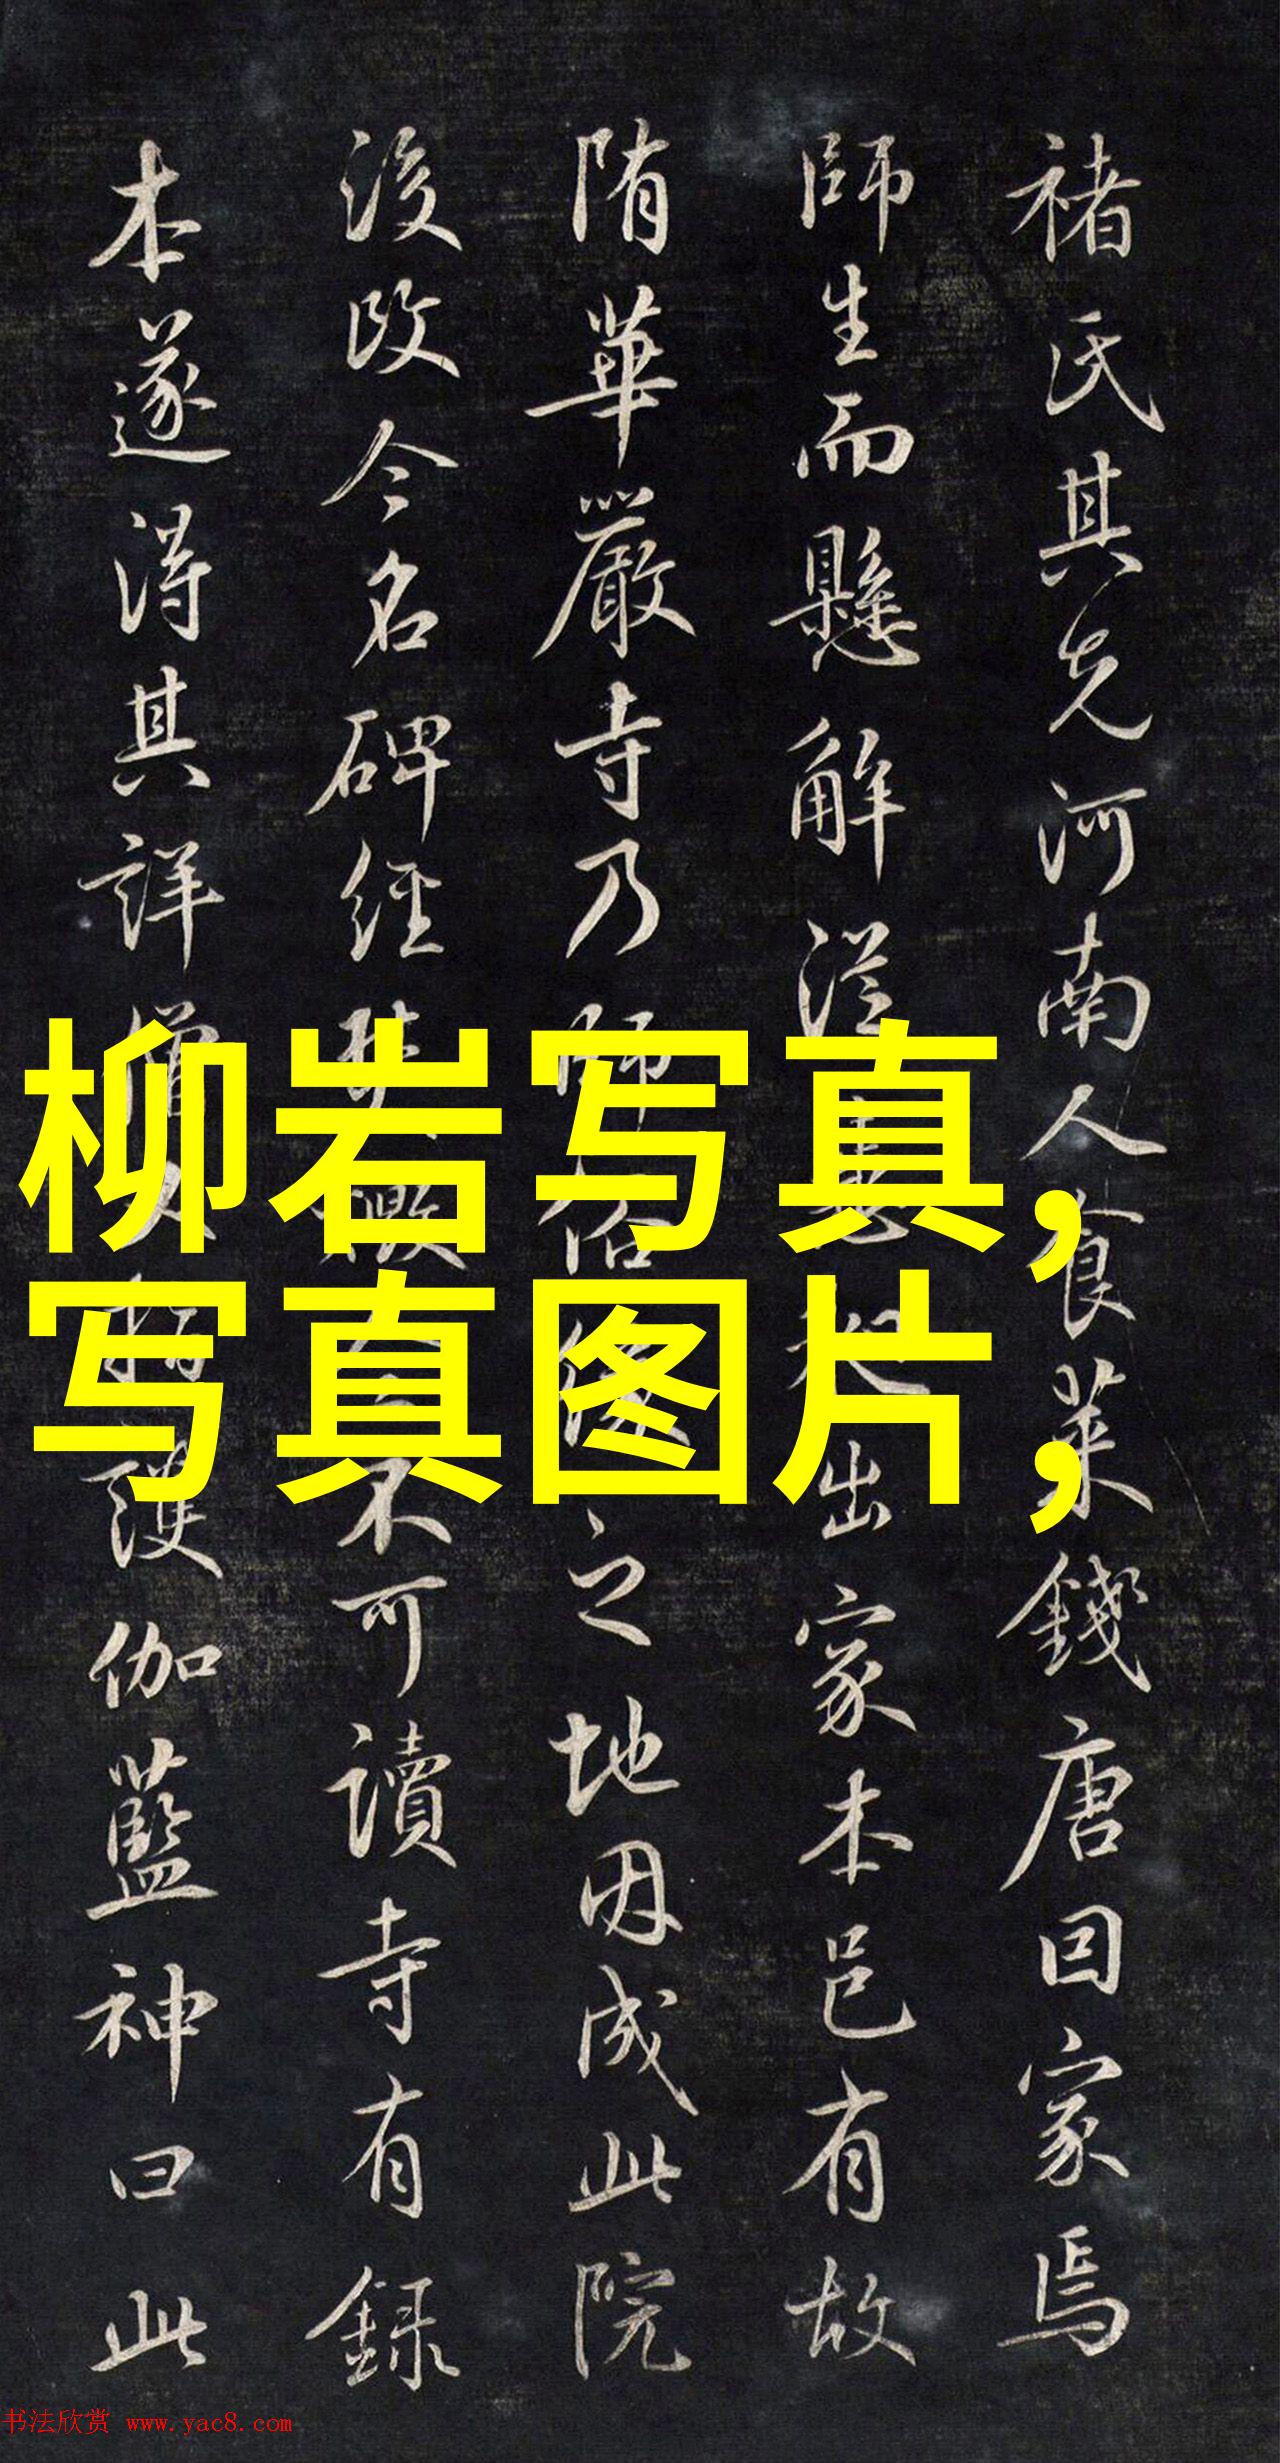 褚氏其先河南人食菜錢唐因家焉
師生而懸解從 出家本邑有故
隋華嚴寺乃師 之地因成此院
後改今名碑經 不可讀寺有録
本遂得其詳僧 護伽藍神曰此
柳岩写真,
写真图片,
书法欣赏 www.yac8.com